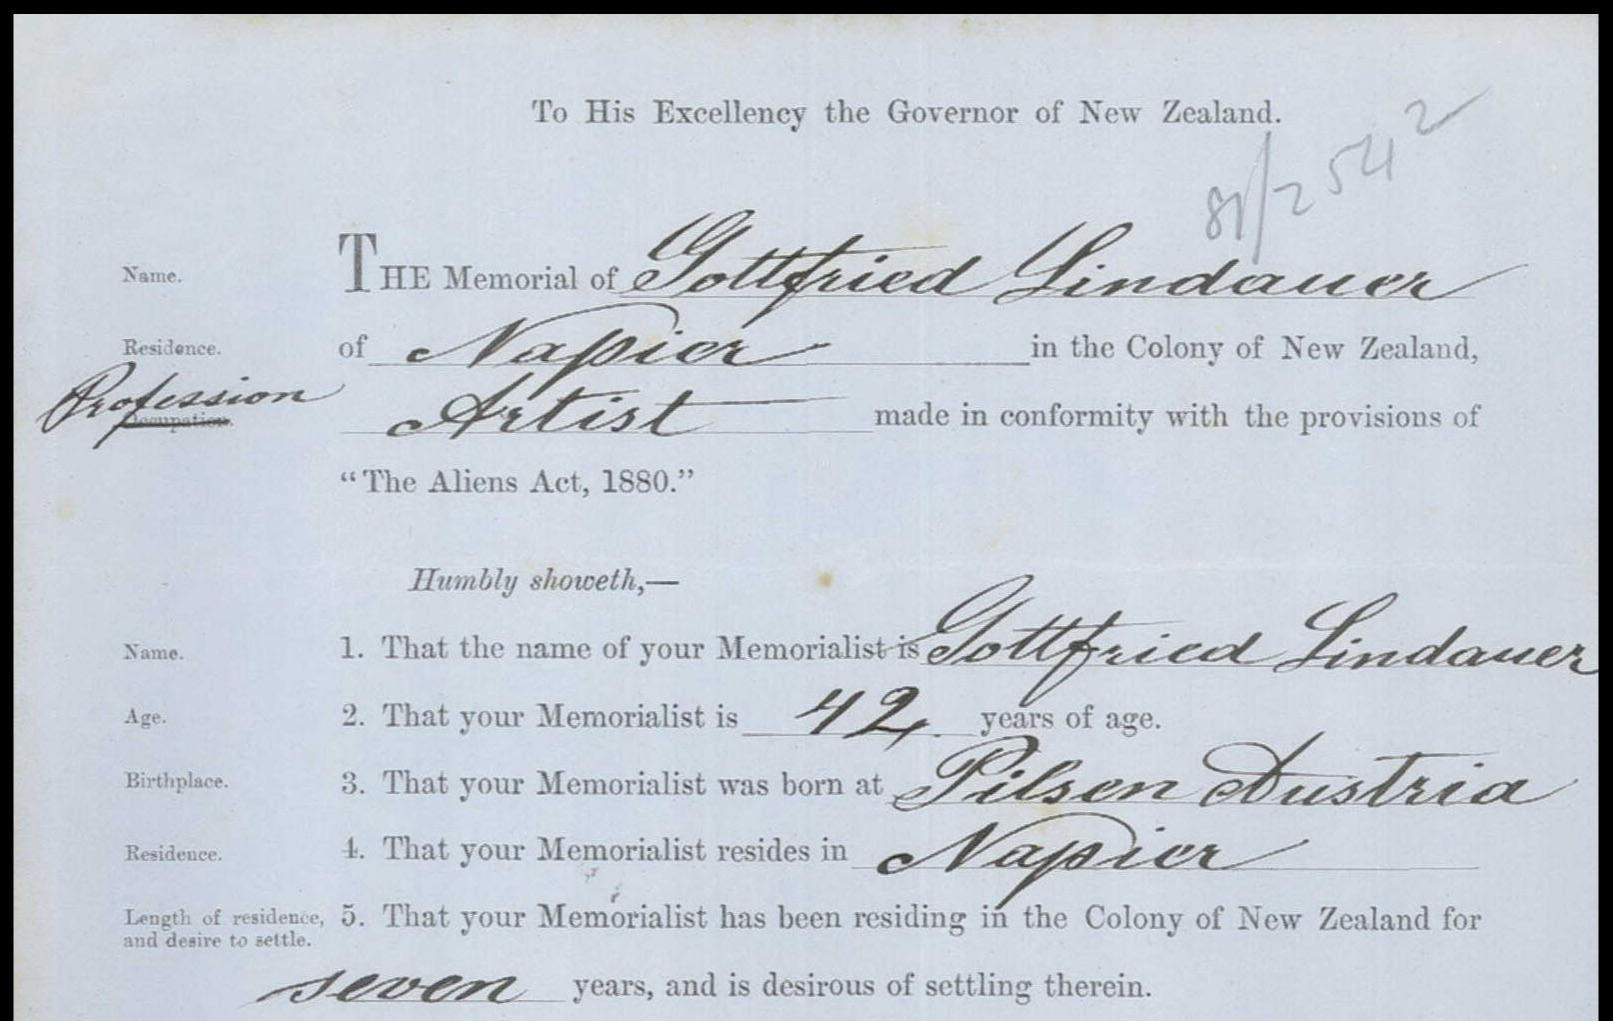 To His Excellency the Governor of New Zealand.
81/2542
Name. THE Memorial of Gottfried Lindauer
Residence. of Napier in the Colony of New Zealand,
Profession
Occupation. Artist made in conformity with the provisions of
“The Aliens Act, 1880.”
Humbly showeth,—
Name. 1. That the name of your Memorialist is Gottfried Lindauer
Age. 2. That your Memorialist is 42 years of age.
Birthplace. 3. That your Memorialist was born at Pilsen Austria
Residence. 4. That your Memorialist resides in Napier
Length of residence, 5. That your Memorialist has been residing in the Colony of New Zealand for
and desire to settle.
seven years, and is desirous of settling therein.